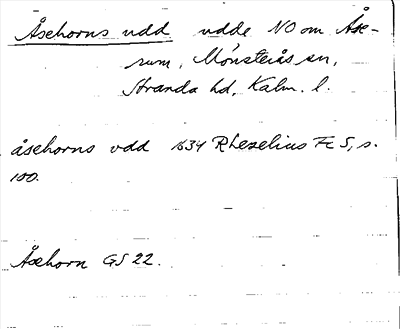 Åsehorns udd udde NO om Åse-
rum, Mönsterås sn,
Stranda hd, Kalm. l.
åsehorns vdd 1634 Rhezelius Fc 5, s.
100.
Åsehorn GS 22.